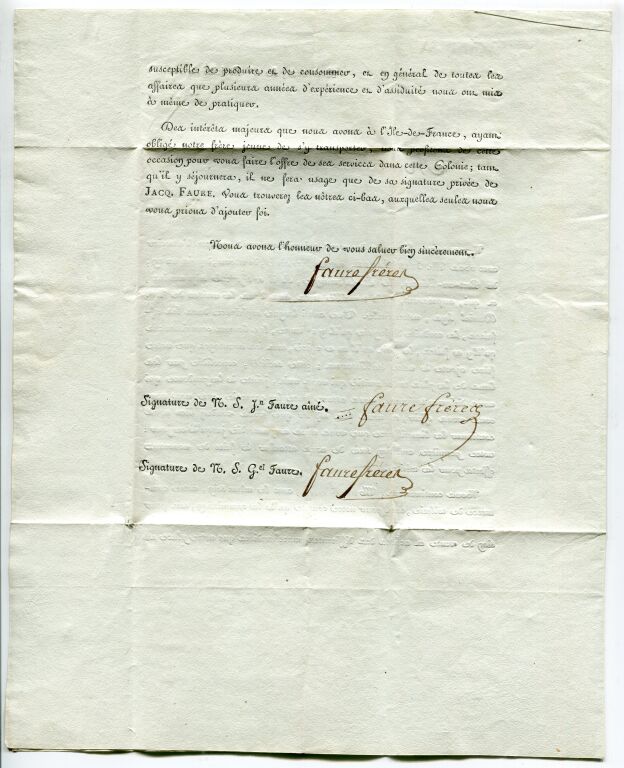 susceptible de produire et de consommer, et en général de toutes les
affaires que plusieurs années d'expérience et d'assiduité nous ont mis
à même de pratiquer.
Des intérêts majeurs que nous avons à l'Ile-de-France, ayant
obligé notre frère jeune de s'y transporter, nous profitons de cette
occasion pour vous faire l'offre de ses services dans cette Colonie; tant
qu'il y séjournera, il ne fera usage que de sa signature privée de
JACQ. FAURE. Vous trouverez les nôtres ci-bas, auxquelles seules nous
vous prions d'ajouter foi.
Nous avons l'honneur de vous saluer bien sincèrement.
faure frères
Signature de N. S. J.n Faure aîné. faure frères
Signature de N. S. G.el Faure. faure frères